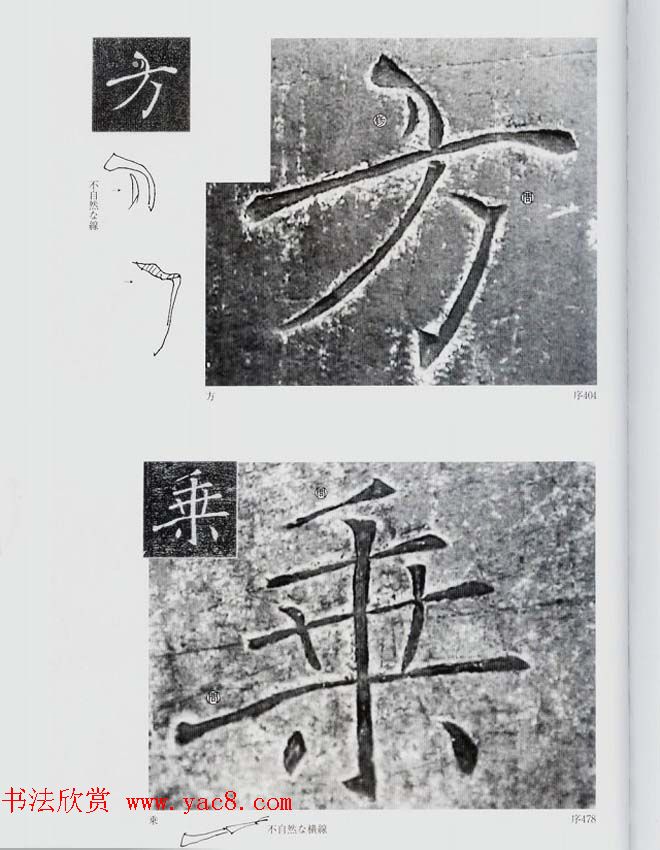 方
不自然な線
方
方
序404
乗
乗
書法欣赏 www.yac8.com
乗
序478
不自然な横線